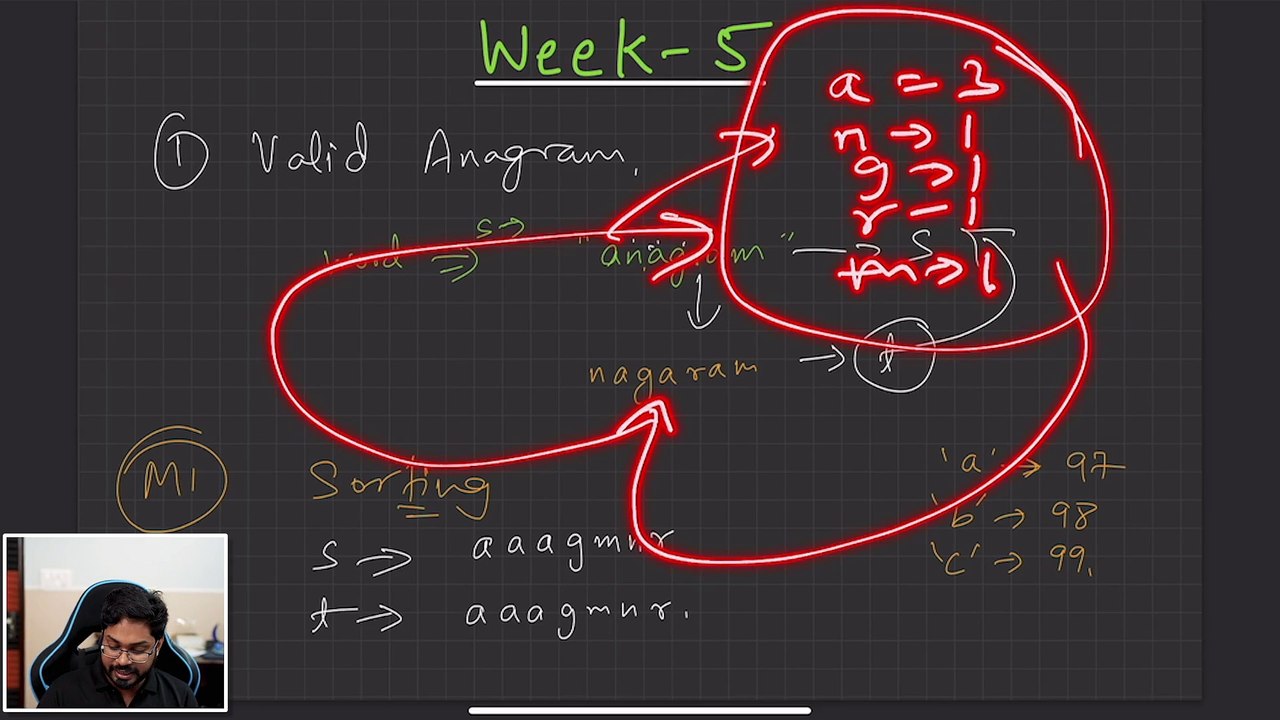 Week - 5
① Valid Anagram.
a = 3
n → 1
g → 1
r - 1
m → 1
word ⇒ s → "anagram" → S
nagaram → t
M1 Sorting
'a' → 97
'b' → 98
'c' → 99.
s → aaagmnr
t → aaagmnr.